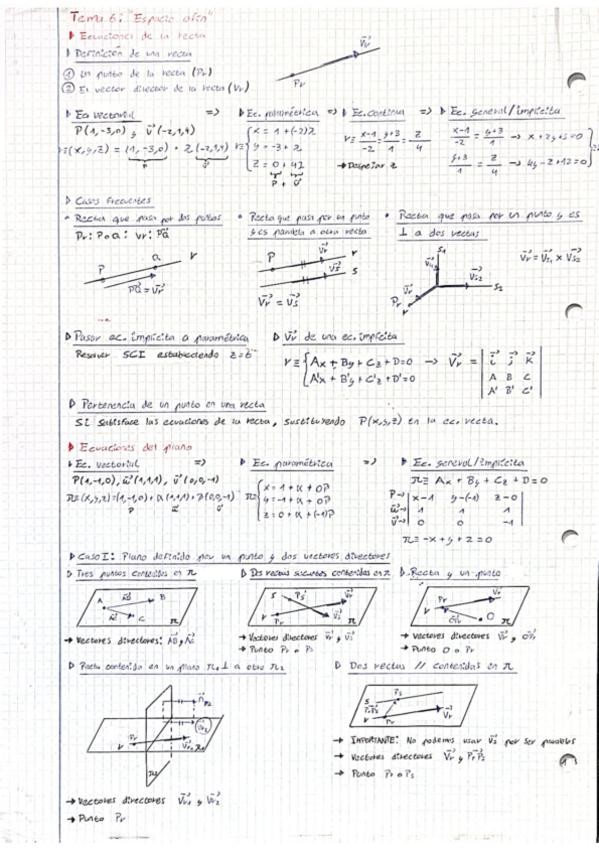 Tema 6: "Espacio afín"
Ecuaciones de la recta
Definición de una recta
① Un punto de la recta (Pr)
② El vector director de la recta (Vr)
Vr
Pr
Ec vectorial => Ec. paramétrica => Ec. continua => Ec. general/implícita
P(1,-3,0) y v(-2,1,4)
r≡(x,y,z) = (1,-3,0) + λ(-2,1,4)
P v
r≡ { x = 1+(-2)λ
y = -3+λ
z = 0+4λ
P + v
r≡ x-1/-2 = y+3/1 = z/4
→ Despejar λ
x-1/-2 = y+3/1 → x+2y+5=0
y+3/1 = z/4 → 4y-z+12=0
Casos frecuentes
• Recta que pasa por dos puntos
Pr: P o Q ; Vr: PQ
P Q r
PQ = Vr
• Recta que pasa por un punto y es paralela a otra recta
P Vr r
Vs s
Vr = Vs
• Recta que pasa por un punto y es ⊥ a dos rectas
S1
Vs2
S2
Vr
Pr
r
Vr = Vs1 x Vs2
Pasar ec. implícita a paramétrica
Resolver SCI estableciendo z=t
Vr de una ec. implícita
r≡ { Ax + By + Cz + D=0
A'x + B'y + C'z + D'=0
→ Vr = | i j k
A B C
A' B' C' |
Pertenencia de un punto en una recta
Si satisface las ecuaciones de la recta, sustituyendo P(x,y,z) en la ec. recta.
Ecuaciones del plano
Ec. vectorial => Ec. paramétrica => Ec. general/implícita
P(1,-1,0), w(1,1,1), v(0,0,-1)
π≡(x,y,z)=(1,-1,0)+α(1,1,1)+β(0,0,-1)
P w v
π≡ { x = 1+α+0β
y = -1+α+0β
z = 0+α+(-1)β
π≡ Ax + By + Cz + D=0
P→ | x-1 y-(-1) z-0 |
w→ | 1 1 1 |
v→ | 0 0 -1 |
π≡ -x+y+2=0
Caso I: Plano definido por un punto y dos vectores directores
Tres puntos contenidos en π
A AB B
AC C π
→ Vectores directores: AB y AC
Dos rectas secantes contenidas en π
s Ps Vr
r Pr Vs π
→ Vectores directores Vr y Vs
→ Punto Pr o Ps
Recta y un punto
Pr Vr
r O π
→ Vectores directores Vr y OPr
→ Punto O o Pr
Recta contenida en un plano π1 ⊥ a otro π2
Pr
r
π2
→ Vectores directores
→ Punto Pr
Dos rectas // contenidas en π
s Ps
PrPs
r Pr Vr π
→ IMPORTANTE: No podemos usar Vs por ser paralelas
→ Vectores directores Vr y PrPs
→ Punto Pr o Ps